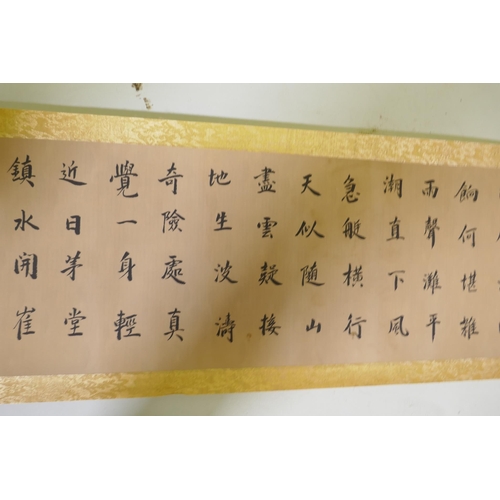 餉何堪雜
雨聲灘平
潮直下風
急艇橫行
天似隨山
盡雲疑接
地生波濤
奇險處真
覺一身輕
近日茅堂
鎮水開崔